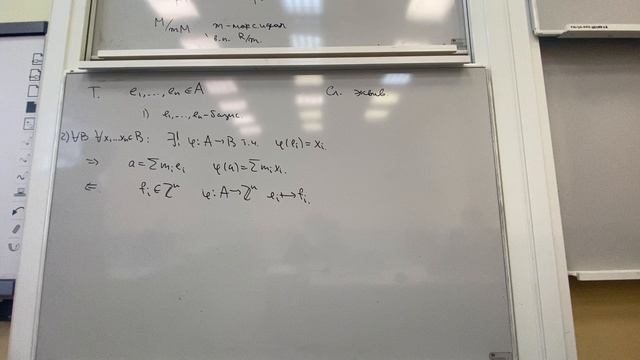 M/mM m-максимал
в.п. R/m.
T. e₁,...,eₙ ∈ A Сл. эквив.
1) e₁,...,eₙ-базис
2) ∀B ∀x₁...xₙ∈B: ∃! φ: A→B т.ч. φ(eᵢ)=xᵢ
⇒ a=∑mᵢeᵢ φ(a)=∑mᵢxᵢ.
⇐ fᵢ∈ℤⁿ φ: A→ℤⁿ eᵢ↦fᵢ.